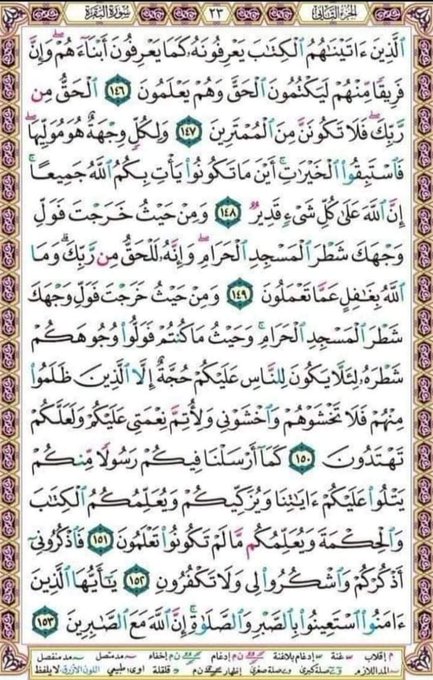 الجزء الثاني ٢٣ سورة البقرة
الَّذِينَ ءَاتَيْنَٰهُمُ الْكِتَٰبَ يَعْرِفُونَهُ كَمَا يَعْرِفُونَ أَبْنَاءَهُمْ وَإِنَّ
فَرِيقًا مِّنْهُمْ لَيَكْتُمُونَ الْحَقَّ وَهُمْ يَعْلَمُونَ ١٤٦ الْحَقُّ مِن
رَّبِّكَ فَلَا تَكُونَنَّ مِنَ الْمُمْتَرِينَ ١٤٧ وَلِكُلٍّ وِجْهَةٌ هُوَ مُوَلِّيهَا
فَاسْتَبِقُوا الْخَيْرَٰتِ أَيْنَ مَا تَكُونُوا يَأْتِ بِكُمُ اللَّهُ جَمِيعًا
إِنَّ اللَّهَ عَلَىٰ كُلِّ شَيْءٍ قَدِيرٌ ١٤٨ وَمِنْ حَيْثُ خَرَجْتَ فَوَلِّ
وَجْهَكَ شَطْرَ الْمَسْجِدِ الْحَرَامِ وَإِنَّهُ لَلْحَقُّ مِن رَّبِّكَ وَمَا
اللَّهُ بِغَٰفِلٍ عَمَّا تَعْمَلُونَ ١٤٩ وَمِنْ حَيْثُ خَرَجْتَ فَوَلِّ وَجْهَكَ
شَطْرَ الْمَسْجِدِ الْحَرَامِ وَحَيْثُ مَا كُنتُمْ فَوَلُّوا وُجُوهَكُمْ
شَطْرَهُ لِئَلَّا يَكُونَ لِلنَّاسِ عَلَيْكُمْ حُجَّةٌ إِلَّا الَّذِينَ ظَلَمُوا
مِنْهُمْ فَلَا تَخْشَوْهُمْ وَاخْشَوْنِي وَلِأُتِمَّ نِعْمَتِي عَلَيْكُمْ وَلَعَلَّكُمْ
تَهْتَدُونَ ١٥٠ كَمَا أَرْسَلْنَا فِيكُمْ رَسُولًا مِّنكُمْ
يَتْلُوا عَلَيْكُمْ ءَايَٰتِنَا وَيُزَكِّيكُمْ وَيُعَلِّمُكُمُ الْكِتَٰبَ
وَالْحِكْمَةَ وَيُعَلِّمُكُم مَّا لَمْ تَكُونُوا تَعْلَمُونَ ١٥١ فَاذْكُرُونِي
أَذْكُرْكُمْ وَاشْكُرُوا لِي وَلَا تَكْفُرُونِ ١٥٢ يَٰأَيُّهَا الَّذِينَ
ءَامَنُوا اسْتَعِينُوا بِالصَّبْرِ وَالصَّلَوٰةِ إِنَّ اللَّهَ مَعَ الصَّٰبِرِينَ ١٥٣
م إقلاب غنة إدغام بلاغنة إدغام إخفاء مد متصل مد منفصل
المد اللازم صلة كبرى وصلة صغرى إظهار قلقلة طبيعي اللون الأزرق لا يلفظ